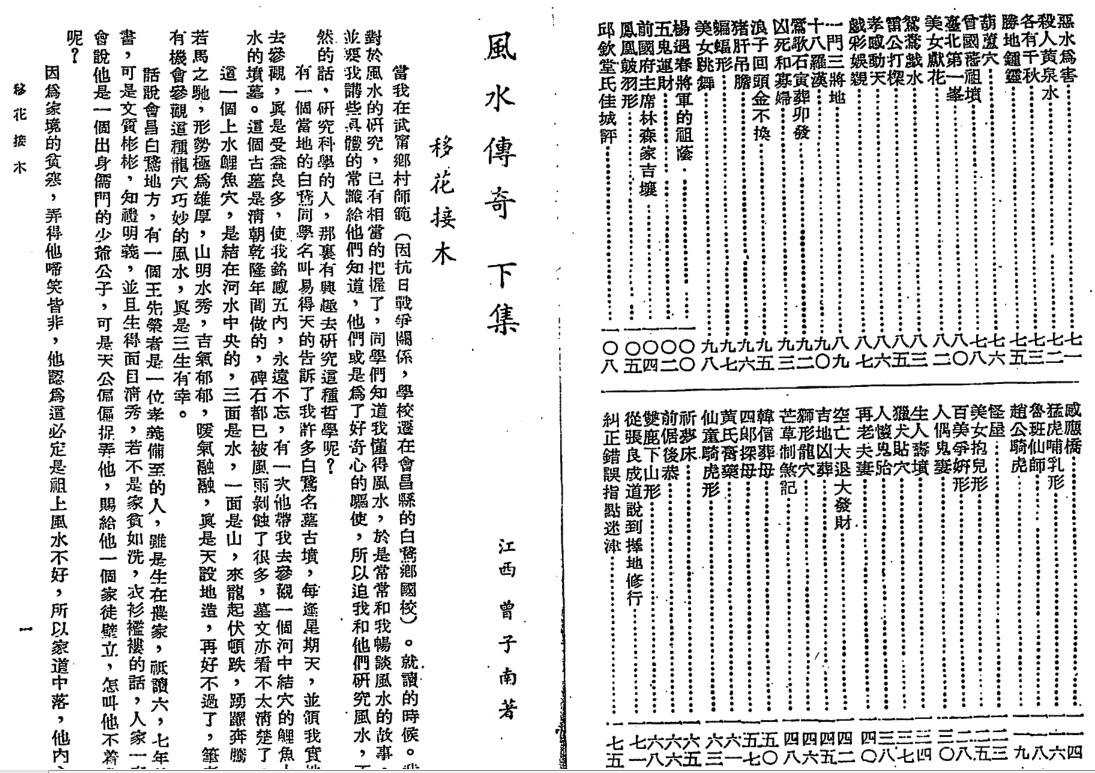 惡水爲害⋯⋯七一
殺人黃泉水⋯⋯七二
各有千秋⋯⋯七三
勝地鍾靈⋯⋯七五
葫蘆穴⋯⋯七六
曾國藩祖墳⋯⋯七八
臺北第一峯⋯⋯八〇
美女獻花⋯⋯八二
鴛鴦戲水⋯⋯八三
雷公打樑⋯⋯八五
孝感動天⋯⋯八六
戲彩娛親⋯⋯八八
一門三將地⋯⋯八九
十八羅漢⋯⋯九〇
鶯歌石寅葬卯發⋯⋯九二
凶死和寡婦⋯⋯九三
浪子回頭金不換⋯⋯九五
豬肝吊膽⋯⋯九六
蝙蝠形⋯⋯九七
美女跳舞⋯⋯九八
楊過春將軍的祖蔭⋯⋯一〇〇
五鬼運財⋯⋯一〇二
前國府主席林森家吉壤⋯⋯一〇四
鳳凰皷羽形⋯⋯一〇五
邱欽堂氏佳城評⋯⋯一〇八
感應橋⋯⋯一一四
猛虎哺乳形⋯⋯一一六
魯班仙師⋯⋯一一八
趙公騎虎⋯⋯一一九
怪屋⋯⋯一二三
美女抱兒形⋯⋯
百美爭妍形⋯⋯一二八
人偶鬼妻⋯⋯一三〇
生人壽墳⋯⋯一三四
獵犬貼穴⋯⋯一三七
人懷鬼胎⋯⋯一三八
再老夫妻⋯⋯一四〇
空亡大退大發財⋯⋯一四二
吉地凶葬⋯⋯一四五
獅形龍穴⋯⋯一四六
芒草制煞記⋯⋯一四八
韓信葬母⋯⋯一五〇
四郎探母⋯⋯一五七
黃氏喬藥⋯⋯一六一
仙童騎虎形⋯⋯一六三
祈夢床⋯⋯一六五
前倨後恭⋯⋯一六六
雙鹿下山形⋯⋯一六八
從張良成道說到擇地修行⋯⋯一七一
糾正錯誤指點迷津⋯⋯一七五
風水傳奇 下集
江西 曾子南著
移花接木
當我在武甯鄉村師範（因抗日戰爭關係，學校遷在會昌縣的白鵞鄉國校）。就讀的時候。我
對於風水的研究，已有相當的把握了，同學們知道我懂得風水，於是常常和我暢談風水的故事，
並要我講些具體的常識給他們知道，他們或是爲了好奇心的驅使，所以迫我和他們研究風水，不
然的話，研究科學的人，那裏有興趣去研究這種哲學呢？
有一個當地的白鵞同學名叫易得天的告訴了我許多白鵞名墓古墳，每逢星期天，並領我實地
去參觀，眞是受益良多，使我銘感五內，永遠不忘，有一次他帶我去參觀一個河中結穴的鯉魚上
水的墳墓。這個古墓是清朝乾隆年間做的，碑石都已被風雨剝蝕了很多，墓文亦看不太清楚了
這一個上水鯉魚穴，是結在河水中央的，三面是水，一面是山，來龍起伏頓跌，踴躍奔騰
若馬之馳，形勢極爲雄厚，山明水秀，吉氣郁郁，暖氣融融，眞是天設地造，再好不過了，筆者
有機會參觀這種龍穴巧妙的風水，眞是三生有幸。
話說會昌白鵞地方，有一個王先榮者是一位孝義備至的人，雖是生在農家，祇讀六，七年的
書，可是文質彬彬，知禮明義，並且生得面目清秀，若不是家貧如洗，衣衫襤褸的話，人家一定
會說他是一個出身儒門的少爺公子，可是天公偏偏捉弄他，賜給他一個家徒壁立，怎叫他不着
呢？
因爲家境的貧寒，弄得他啼笑皆非，他認爲這必定是祖上風水不好，所以家道中落，他內心
移花接木
一